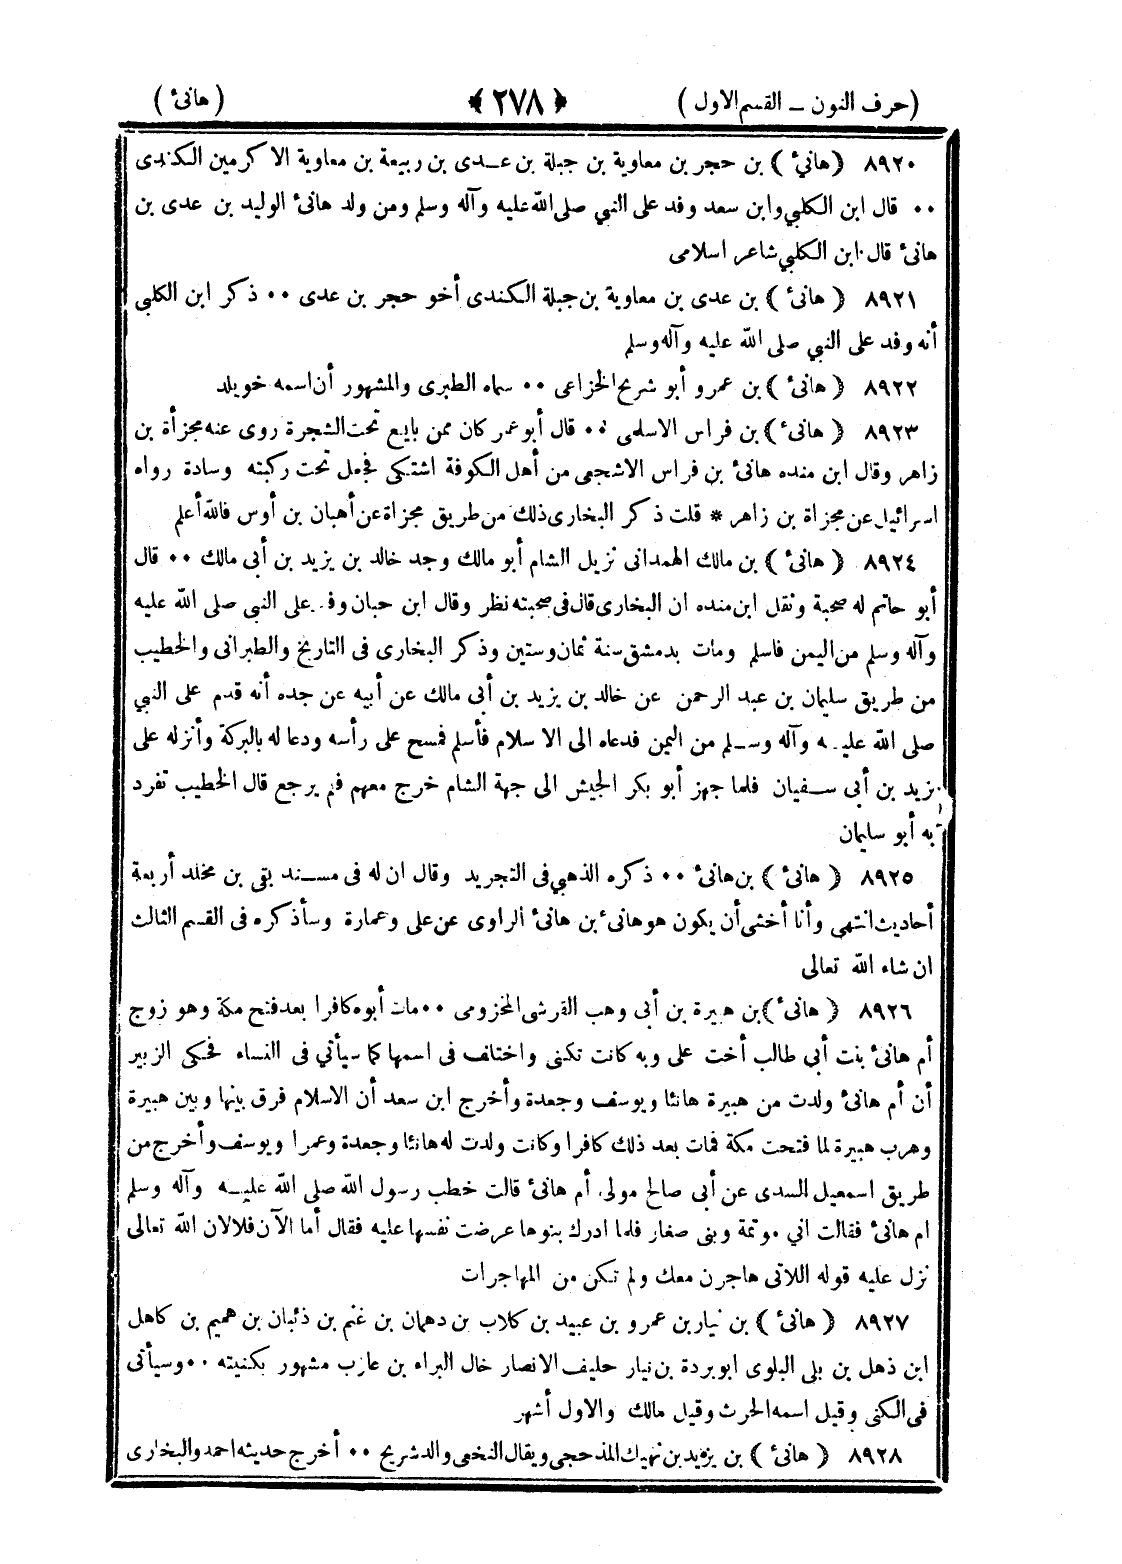 (حرف النون ــ القسم الاول) ﴿٢٧٨﴾ (هانئ)
٨٩٢٠ (هانئ) بن حجر بن معاوية بن جبلة بن عدى بن ربيعة بن معاوية الاكرمين الكندى
٠٠ قال ابن الكلبي وابن سعد وفد على النبي صلى الله عليه وآله وسلم ومن ولد هانئ الوليد بن عدى بن
هانئ قال ابن الكلبي شاعر اسلامى
٨٩٢١ (هانئ) بن عدى بن معاوية بن جبلة الكندى أخو حجر بن عدى ٠٠ ذكر ابن الكلبى
أنه وفد على النبي صلى الله عليه وآله وسلم
٨٩٢٢ (هانئ) بن عمرو أبو شريح الخزاعى ٠٠ سماه الطبرى والمشهور أن اسمه خويلد
٨٩٢٣ (هانئ) بن فراس الاسلمى ٠٠ قال أبو عمر كان ممن بايع تحت الشجرة روى عنه مجزأة بن
زاهر وقال ابن منده هانئ بن فراس الاشجعى من أهل الكوفة اشتكى فجعل تحت ركبته وسادة رواه
اسرائيل عن مجزاة بن زاهر * قلت ذكر البخارى ذلك من طريق مجزاة عن أهبان بن أوس فالله أعلم
٨٩٢٤ (هانئ) بن مالك الهمدانى نزيل الشام أبو مالك وجد خالد بن يزيد بن أبى مالك ٠٠ قال
أبو حاتم له صحبة ونقل ابن منده ان البخارى قال فى صحبته نظر وقال ابن حبان وفد على النبي صلى الله عليه
وآله وسلم من اليمن فاسلم ومات بدمشق سنة ثمان وستين وذكر البخارى فى التاريخ والطبرانى والخطيب
من طريق سليمان بن عبد الرحمن عن خالد بن يزيد بن أبى مالك عن أبيه عن جده أنه قدم على النبي
صلى الله عليه وآله وسلم من اليمن فدعاه الى الاسلام فأسلم فمسح على رأسه ودعا له بالبركة وأنزله على
يزيد بن أبى سفيان فلما جهز أبو بكر الجيش الى جهة الشام خرج معهم فلم يرجع قال الخطيب تفرد
به أبو سليمان
٨٩٢٥ (هانئ) بن هانئ ٠٠ ذكره الذهبي فى التجريد وقال ان له فى مسند بقى بن مخلد أربعة
أحاديث انتهى وأنا أخشى أن يكون هو هانئ بن هانئ الراوى عن على وعمارة وسأذكره فى القسم الثالث
ان شاء الله تعالى
٨٩٢٦ (هانئ) بن هبيرة بن أبى وهب القرشى المخزومى ٠٠ مات أبوه كافرا بعد فتح مكة وهو زوج
أم هانئ بنت أبي طالب أخت على وبه كانت تكنى واختلف فى اسمها كما سيأتي فى النساء فحكى الزبير
أن أم هانئ ولدت من هبيرة هانئا ويوسف وجعدة وأخرج ابن سعد أن الاسلام فرق بينها وبين هبيرة
وهرب هبيرة لما فتحت مكة فمات بعد ذلك كافرا وكانت ولدت له هانئا وجعدة وعمرا ويوسف وأخرج من
طريق اسمعيل السدى عن أبى صالح مولى أم هانئ قالت خطب رسول الله صلى الله عليه وآله وسلم
ام هانئ فقالت اني موتمة وبنى صغار فلما ادرك بنوها عرضت نفسها عليه فقال أما الآن فلا لان الله تعالى
نزل عليه قوله اللاتى هاجرن معك ولم تكن من المهاجرات
٨٩٢٧ (هانئ) بن نيار بن عمرو بن عبيد بن كلاب بن دهمان بن غنم بن ذئبان بن هميم بن كاهل
ابن ذهل بن بلى البلوى ابو بردة بن نيار حليف الانصار خال البراء بن عازب مشهور بكنيته ٠٠ وسيأتى
فى الكنى وقيل اسمه الحرث وقيل مالك والاول أشهر
٨٩٢٨ (هانئ) بن يزيد بن نهيك المذحجى ويقال النخعى والد شريح ٠٠ أخرج حديثه احمد والبخارى